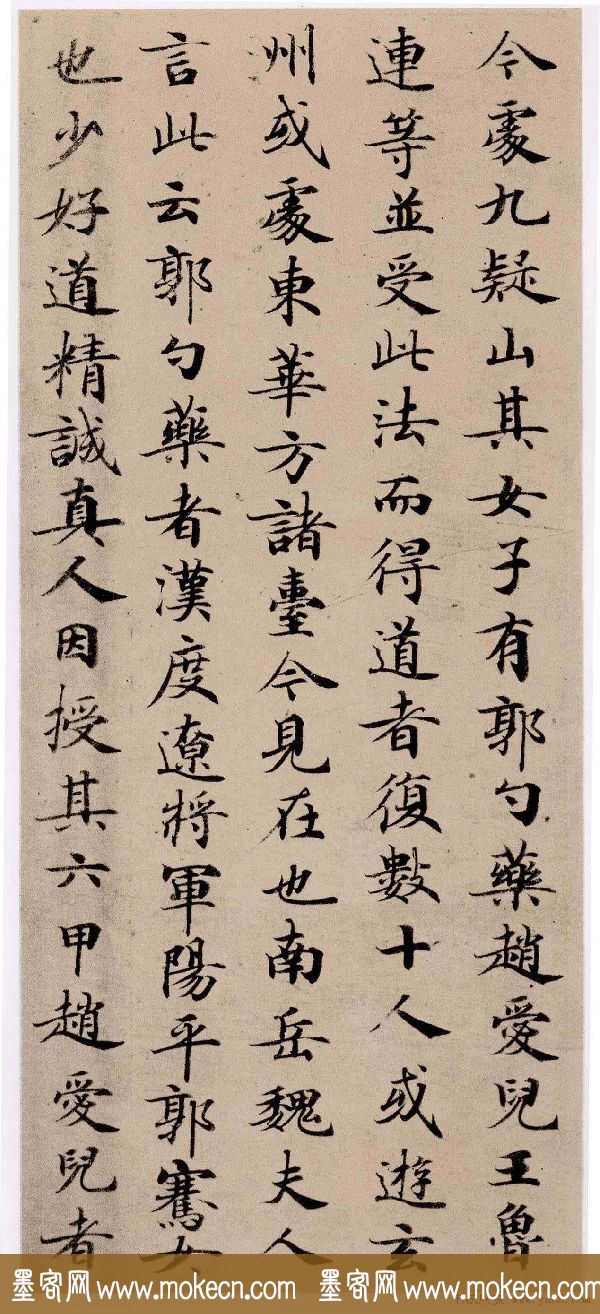 今處九疑山其女子有郭勺藥趙愛兒王魯
連等並受此法而得道者復數十人或遊玄
州或處東華方諸臺今見在也南岳魏夫人
言此云郭勺藥者漢度遼將軍陽平郭騫女
也少好道精誠真人因授其六甲趙愛兒者
墨客网 www.mokecn.com 墨客网 www.mokecn.com